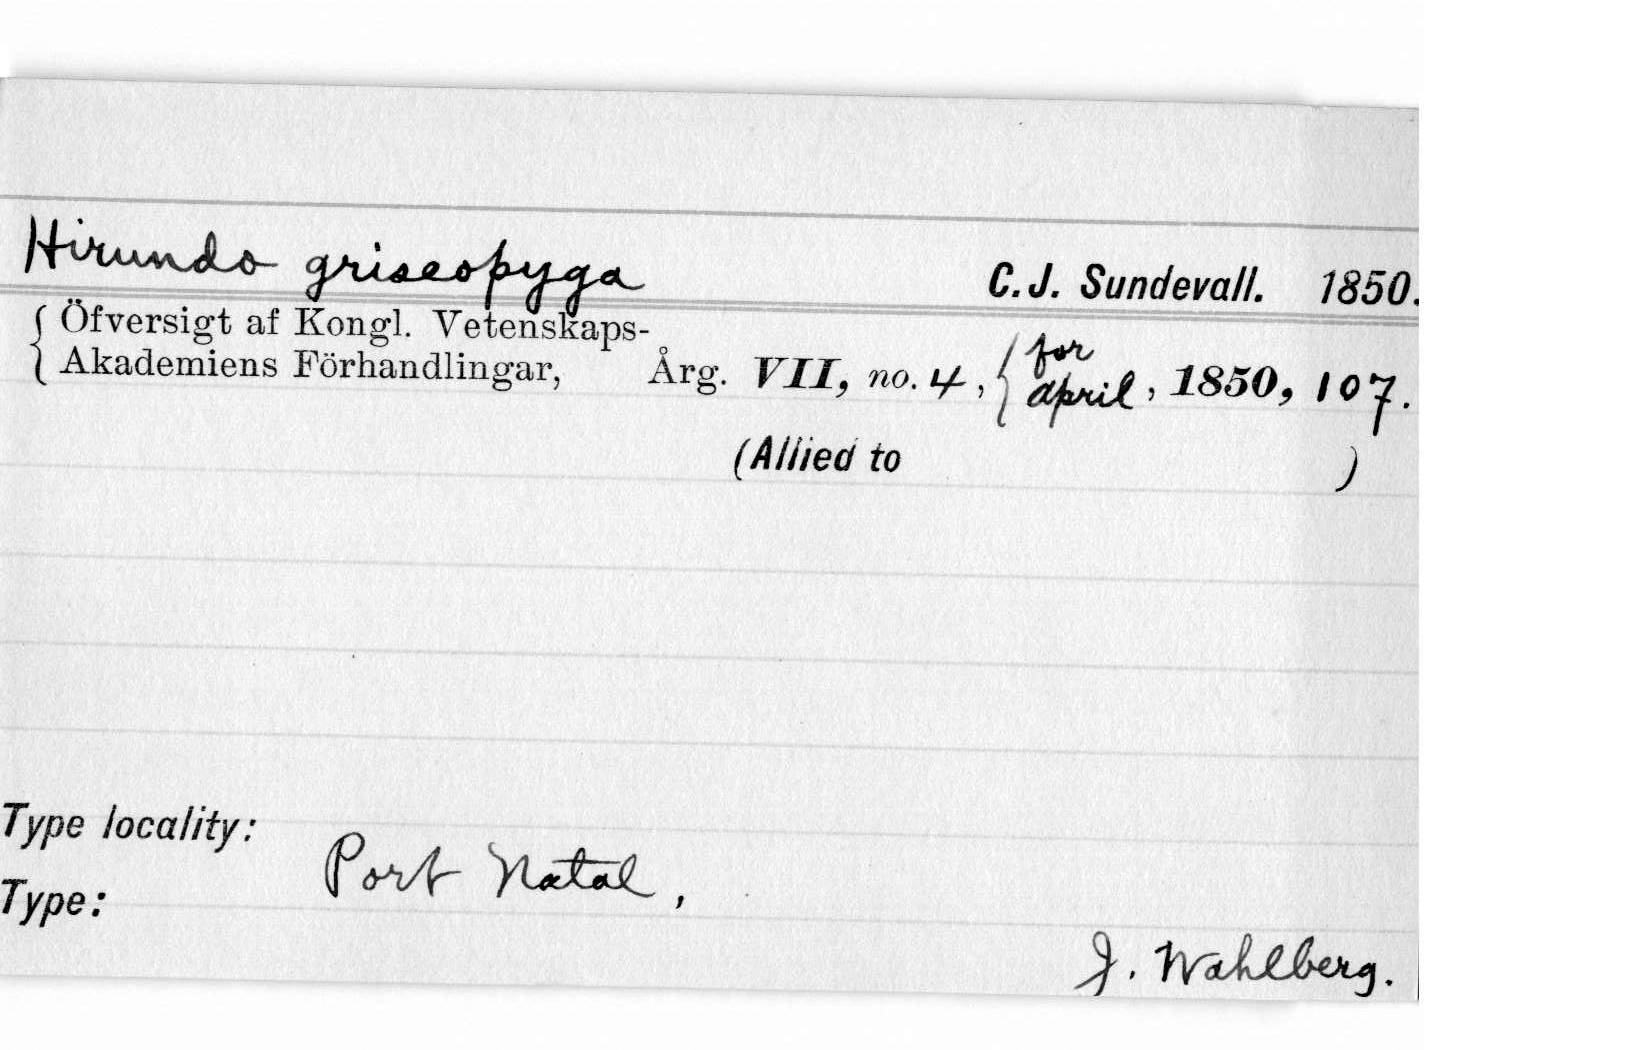 Hirundo griseopyga C. J. Sundevall. 1850.
Öfversigt af Kongl. Vetenskaps-
Akademiens Förhandlingar, Årg. VII, no. 4, for april, 1850, 107.
(Allied to )
Type locality:
Port Natal,
Type:
J. Wahlberg.